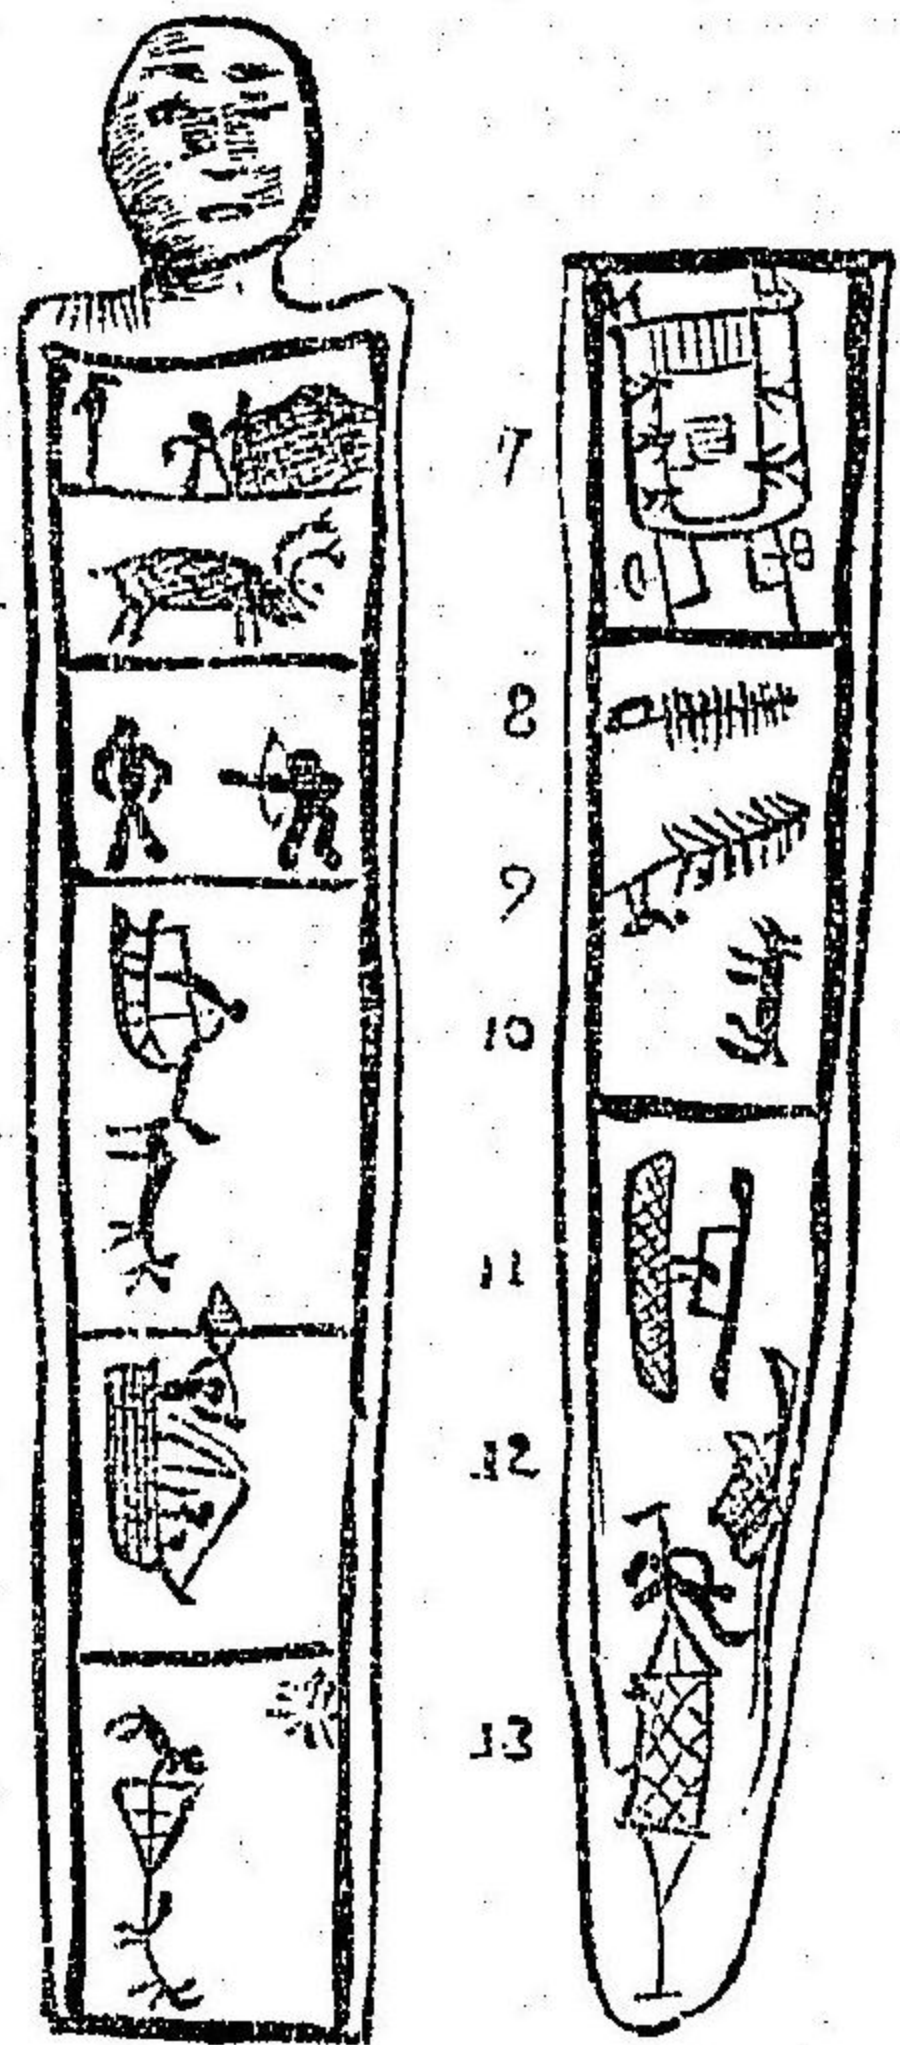 7
8
9
10
11
12
13